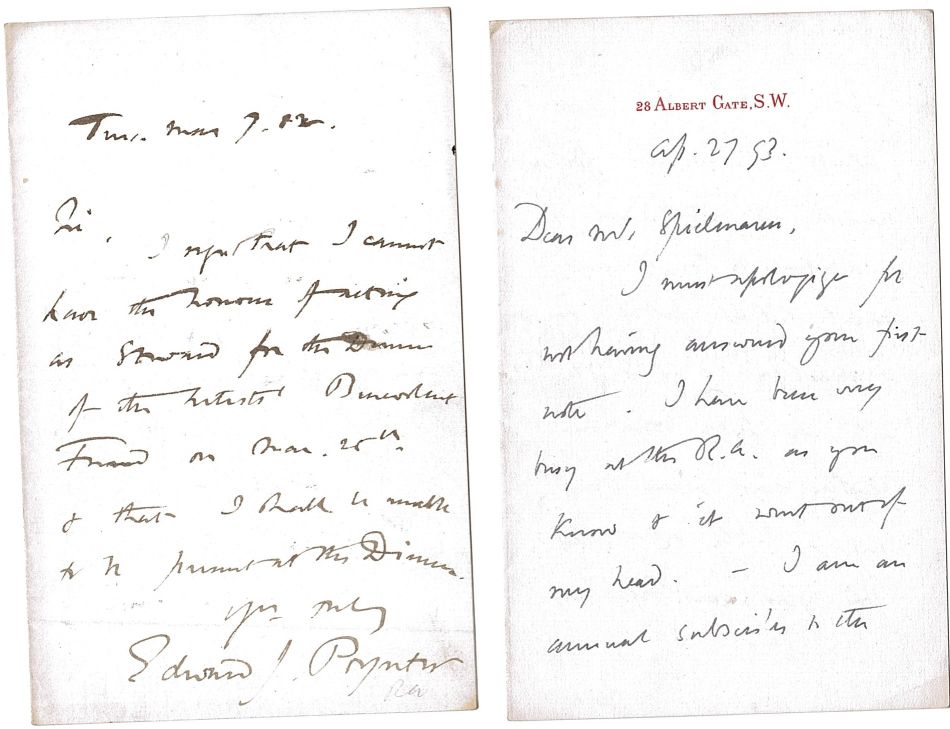 Tues. Mar 7. 82.
Sir,
I regret that I cannot
have the honour of acting
as Steward for the Dinner
of the Artists' Benevolent
Fund on Mar. 25th.
& that I shall be unable
to be present at the Dinner.
Yrs truly
Edward J. Poynter
RA
28 ALBERT GATE, S.W.
Ap. 27 93.
Dear Mr. Spielmann,
I must apologize for
not having answered your first
note. I have been very
busy at the R.A. as you
know & it went out of
my head. — I am an
annual subscriber to the